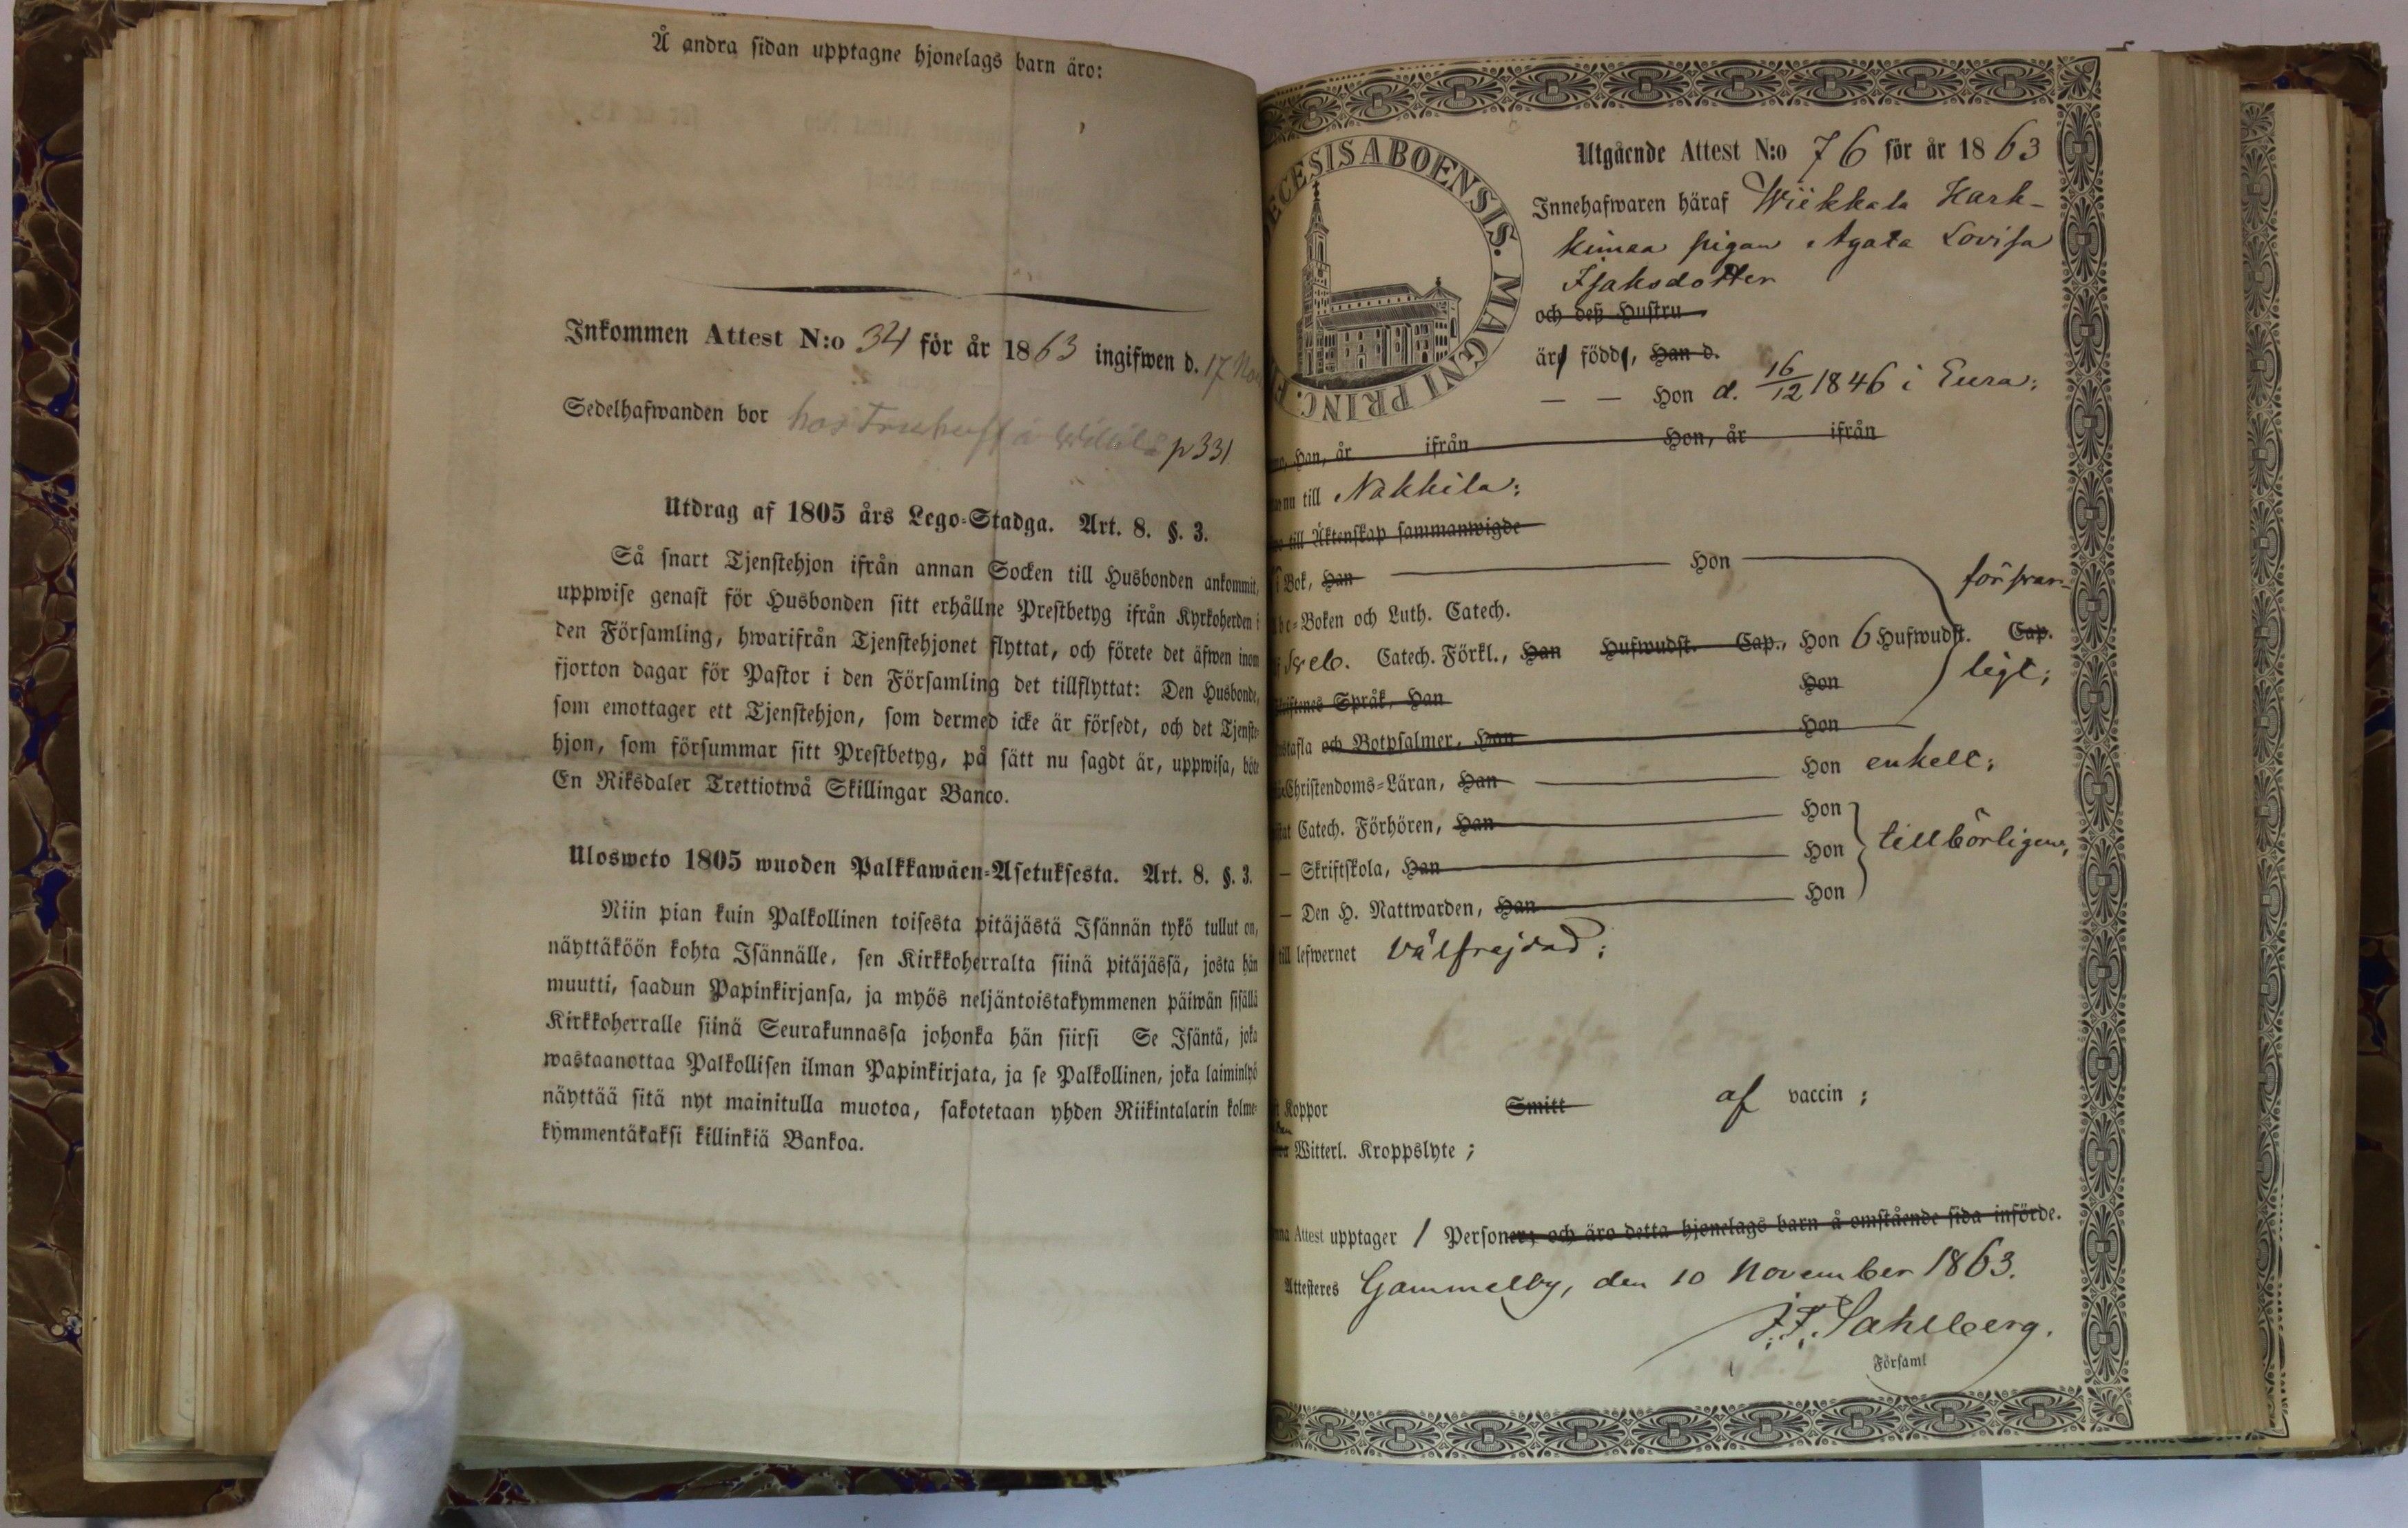 Å andra sidan upptagne hjonelags barn äro:
Inkommen Attest N:o 34 för år 1863 ingifwen d. 17 Nov
Sedelhafwanden bor hos p 331
Utdrag af 1805 års Lego-Stadga. Art. 8. §. 3.
Så snart Tjenstehjon ifrån annan Socken till Husbonden ankommit,
uppwise genast för Husbonden sitt erhållne Prestbetyg ifrån Kyrkoherden i
den Församling, hwarifrån Tjenstehjonet flyttat, och förete det äfwen inom
fjorton dagar för Pastor i den Församling det tillflyttat: Den Husbonde,
som emottager ett Tjenstehjon, som dermed icke är försedt, och det Tjenste-
hjon, som försummar sitt Prestbetyg, på sätt nu sagdt är, uppwisa, böte
En Riksdaler Trettiotwå Skillingar Banco.
Ulosweto 1805 wuoden Palkkawäen-Asetuksesta. Art. 8. §. 3.
Niin pian kuin Palkollinen toisesta pitäjästä Isännän tykö tullut on,
näyttäköön kohta Isännälle, sen Kirkkoherralta siinä pitäjässä, josta hän
muutti, saadun Papinkirjansa, ja myös neljäntoistakymmenen päiwän sisällä
Kirkkoherralle siinä Seurakunnassa johonka hän siirsi Se Isäntä, joka
wastaanottaa Palkollisen ilman Papinkirjata, ja se Palkollinen, joka laiminlyö
näyttää sitä nyt mainitulla muotoa, sakotetaan yhden Riikintalarin kolme-
kymmentäkaksi killinkiä Bankoa.
ECESIS ABOENSIS. MAGNI PRINC.
Utgående Attest N:o 76 för år 1863
Innehafwaren häraf Wiikkala Hark-
kimaa pigan Agata Lovisa
Isaksdotter
och deß Hustru
är född, Han d.
— — Hon d. 16/12 1846 i Eura;
Han, år ifrån Hon, år ifrån
nu till Nakkila;
till Äktenskap sammanwigde
i Bok, Han Hon försvar-
Abc-Boken och Luth. Catech.
Sveb. Catech. Förkl., Han Hufwudst. Cap., Hon 6 Hufwudst. Cap.
ligt;
Skriftenes Språk, Han Hon
Hustafla och Botpsalmer, Han Hon
Christendoms-Läran, Han Hon enkelt;
Catech. Förhören, Han Hon
— Skriftskola, Han Hon tillbörligen,
— Den H. Nattwarden, Han Hon
till lefwernet välfrejdad;
Koppor Smitt af vaccin;
Witterl. Kroppslyte;
Attest upptager 1 Personer; och äro detta hjonelags barn å omstående sida införde.
Attesteres Gammelby, den 10 November 1863.
J. F. Sahlberg.
Församl